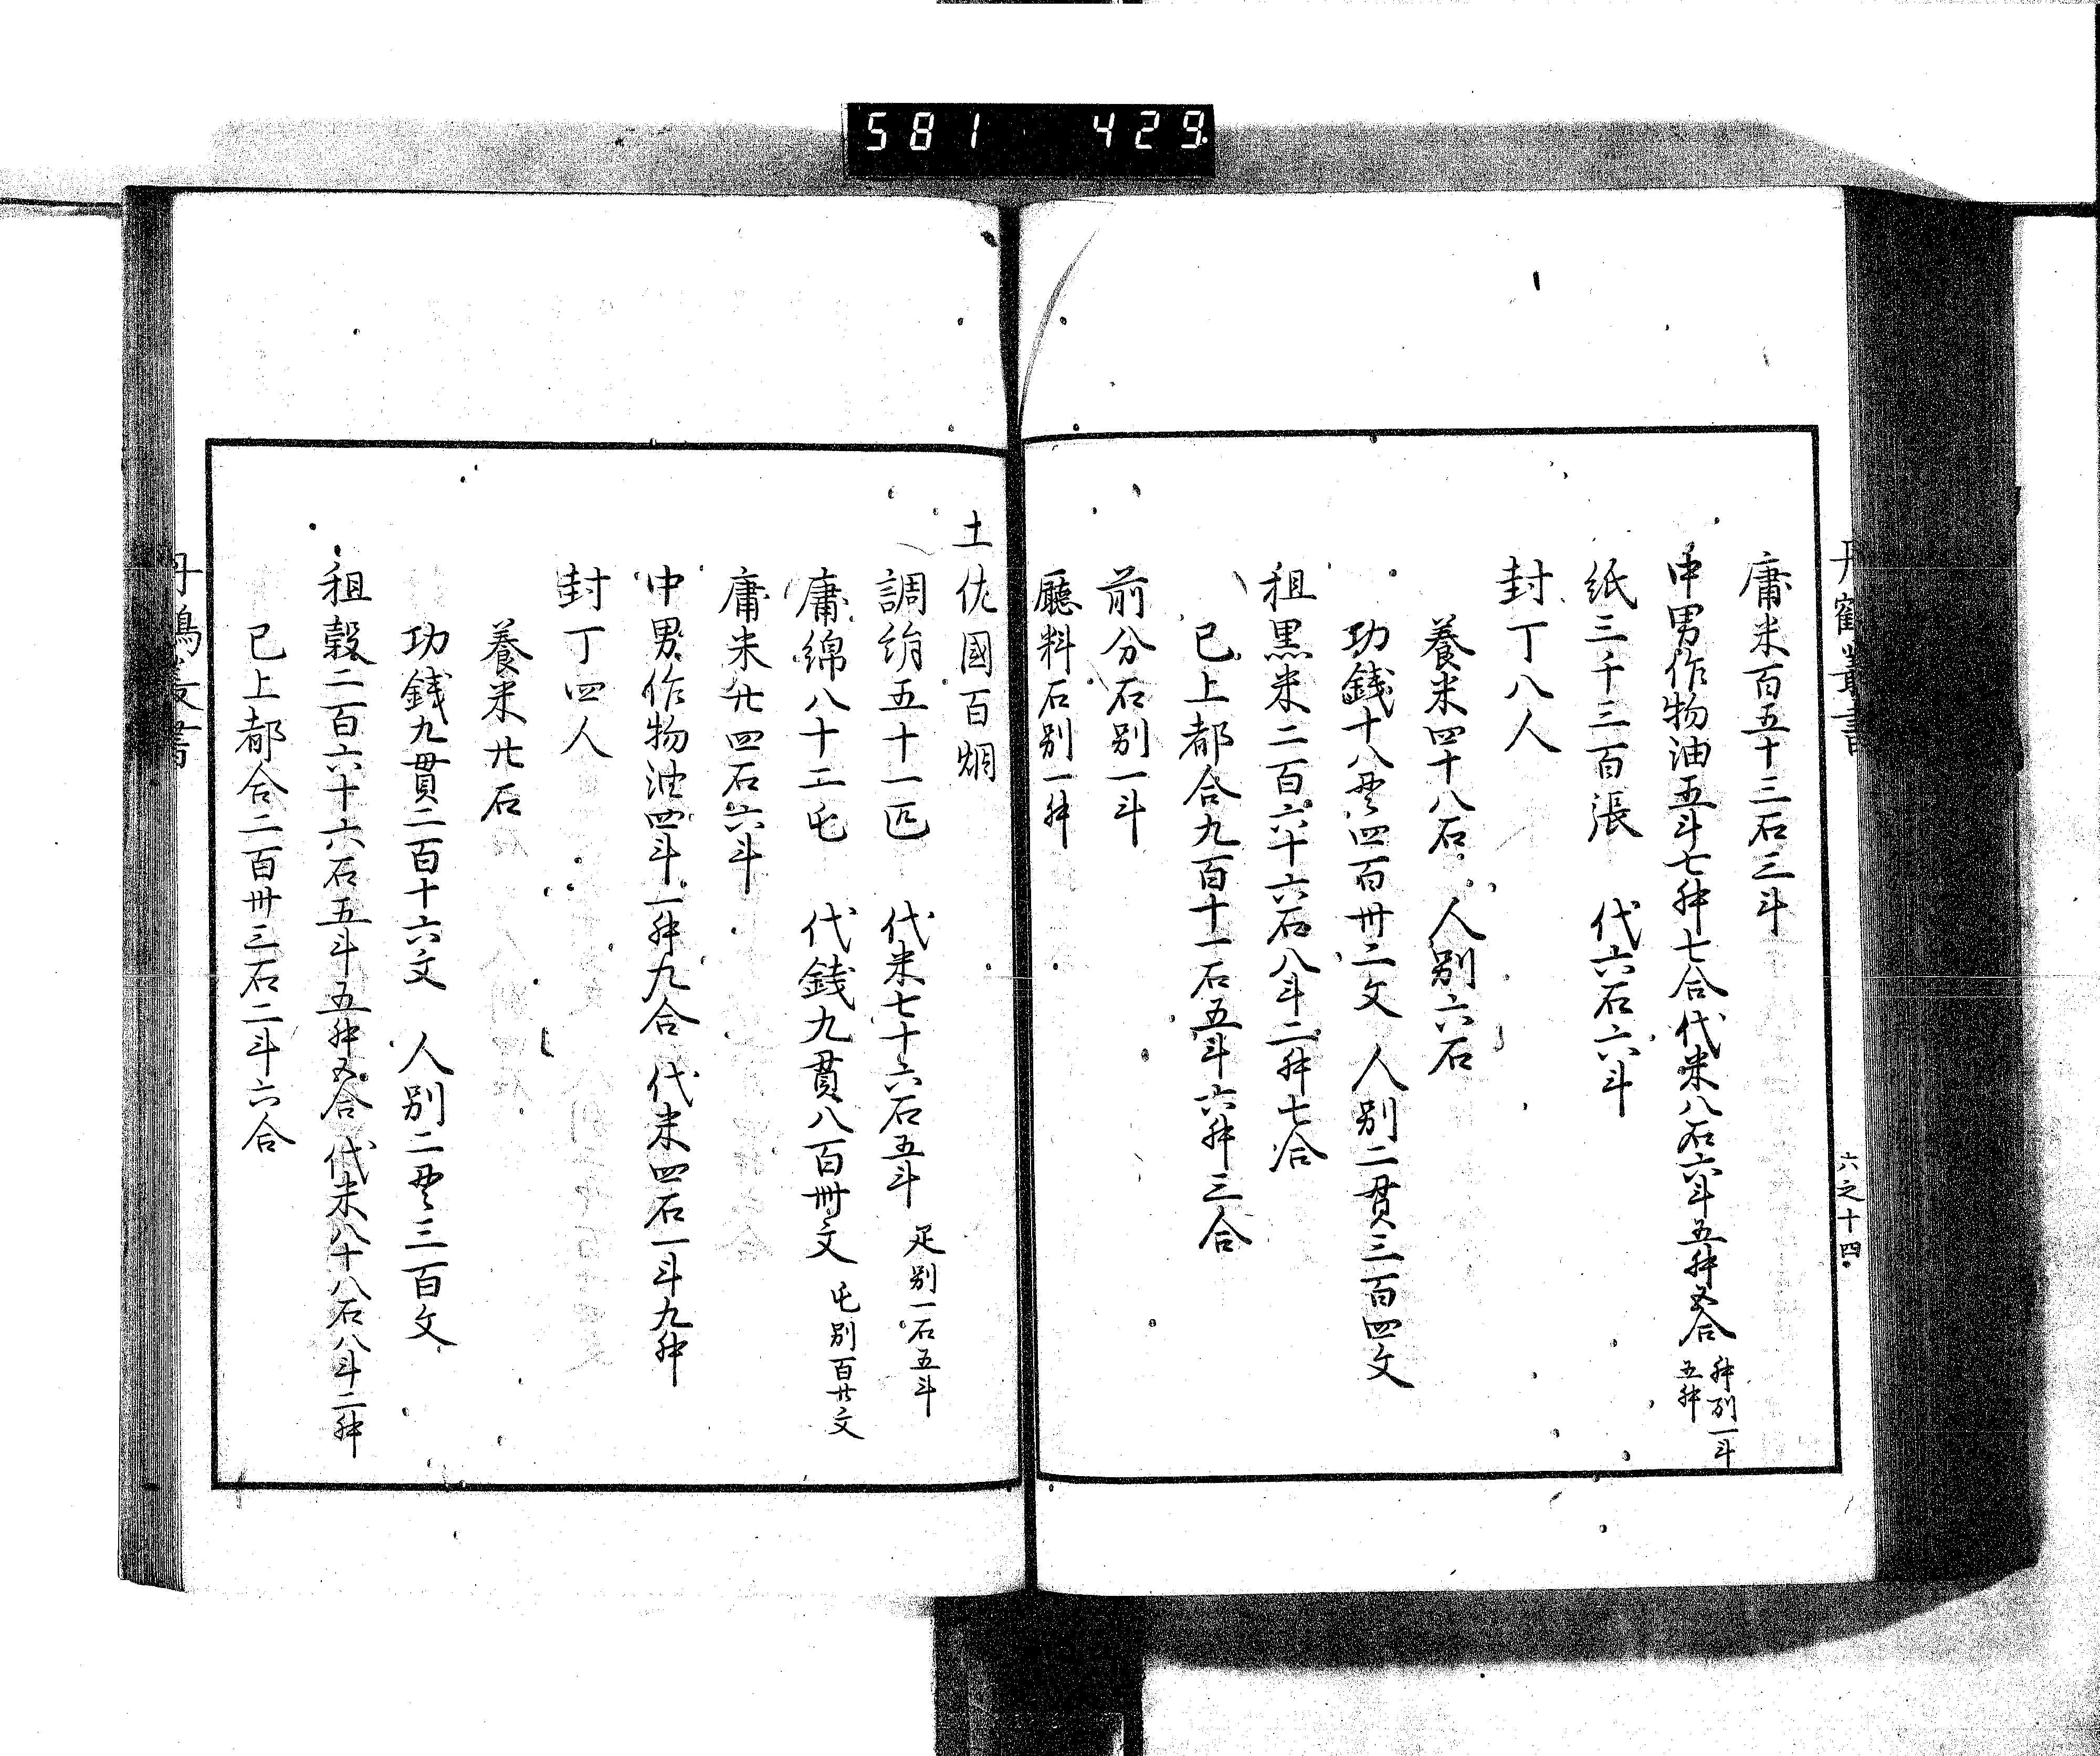 581 429
丹鶴叢書
六之十四
庸米百五十三石三斗
中男作物油五斗七舛七合代米八石六斗五舛五合 舛別一斗五舛
紙三千三百張 代六石六斗
封丁八人
養米四十八石 人別六石
功銭十八貫四百卅二文 人別二貫三百四文
租黒米二百六十六石八斗二舛七合
已上都合九百十一石五斗六舛三合
前分石別一斗
廳料石別一舛
土佐國百烟
調絹五十一匹 代米七十六石五斗 疋別一石五斗
庸綿八十二屯 代銭九貫八百卌文 屯別百廿文
庸米廿四石六斗
中男作物油四斗一舛九合 代米四石一斗九舛
封丁四人
養米廿石
功銭九貫二百十六文 人別二貫三百文
租穀二百六十六石五斗五舛五合 代米八十八石八斗二舛
已上都合二百卅三石二斗六合
丹鶴叢書